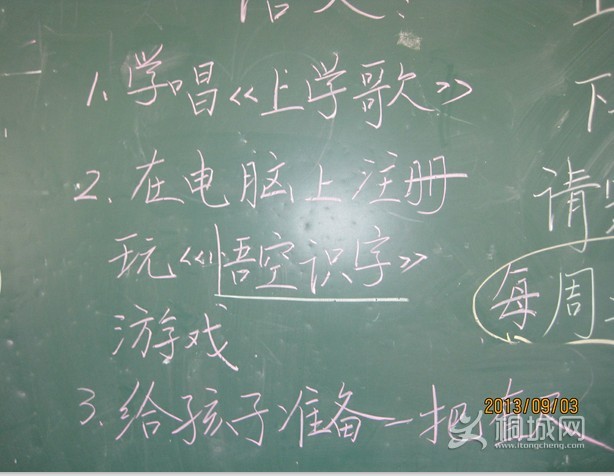 1. 学唱《上学歌》
2. 在电脑上注册
玩《悟空识字》
游戏.
3. 给孩子准备一把
下
请
每周
2013/09/03
桐城网
www.itongcheng.com